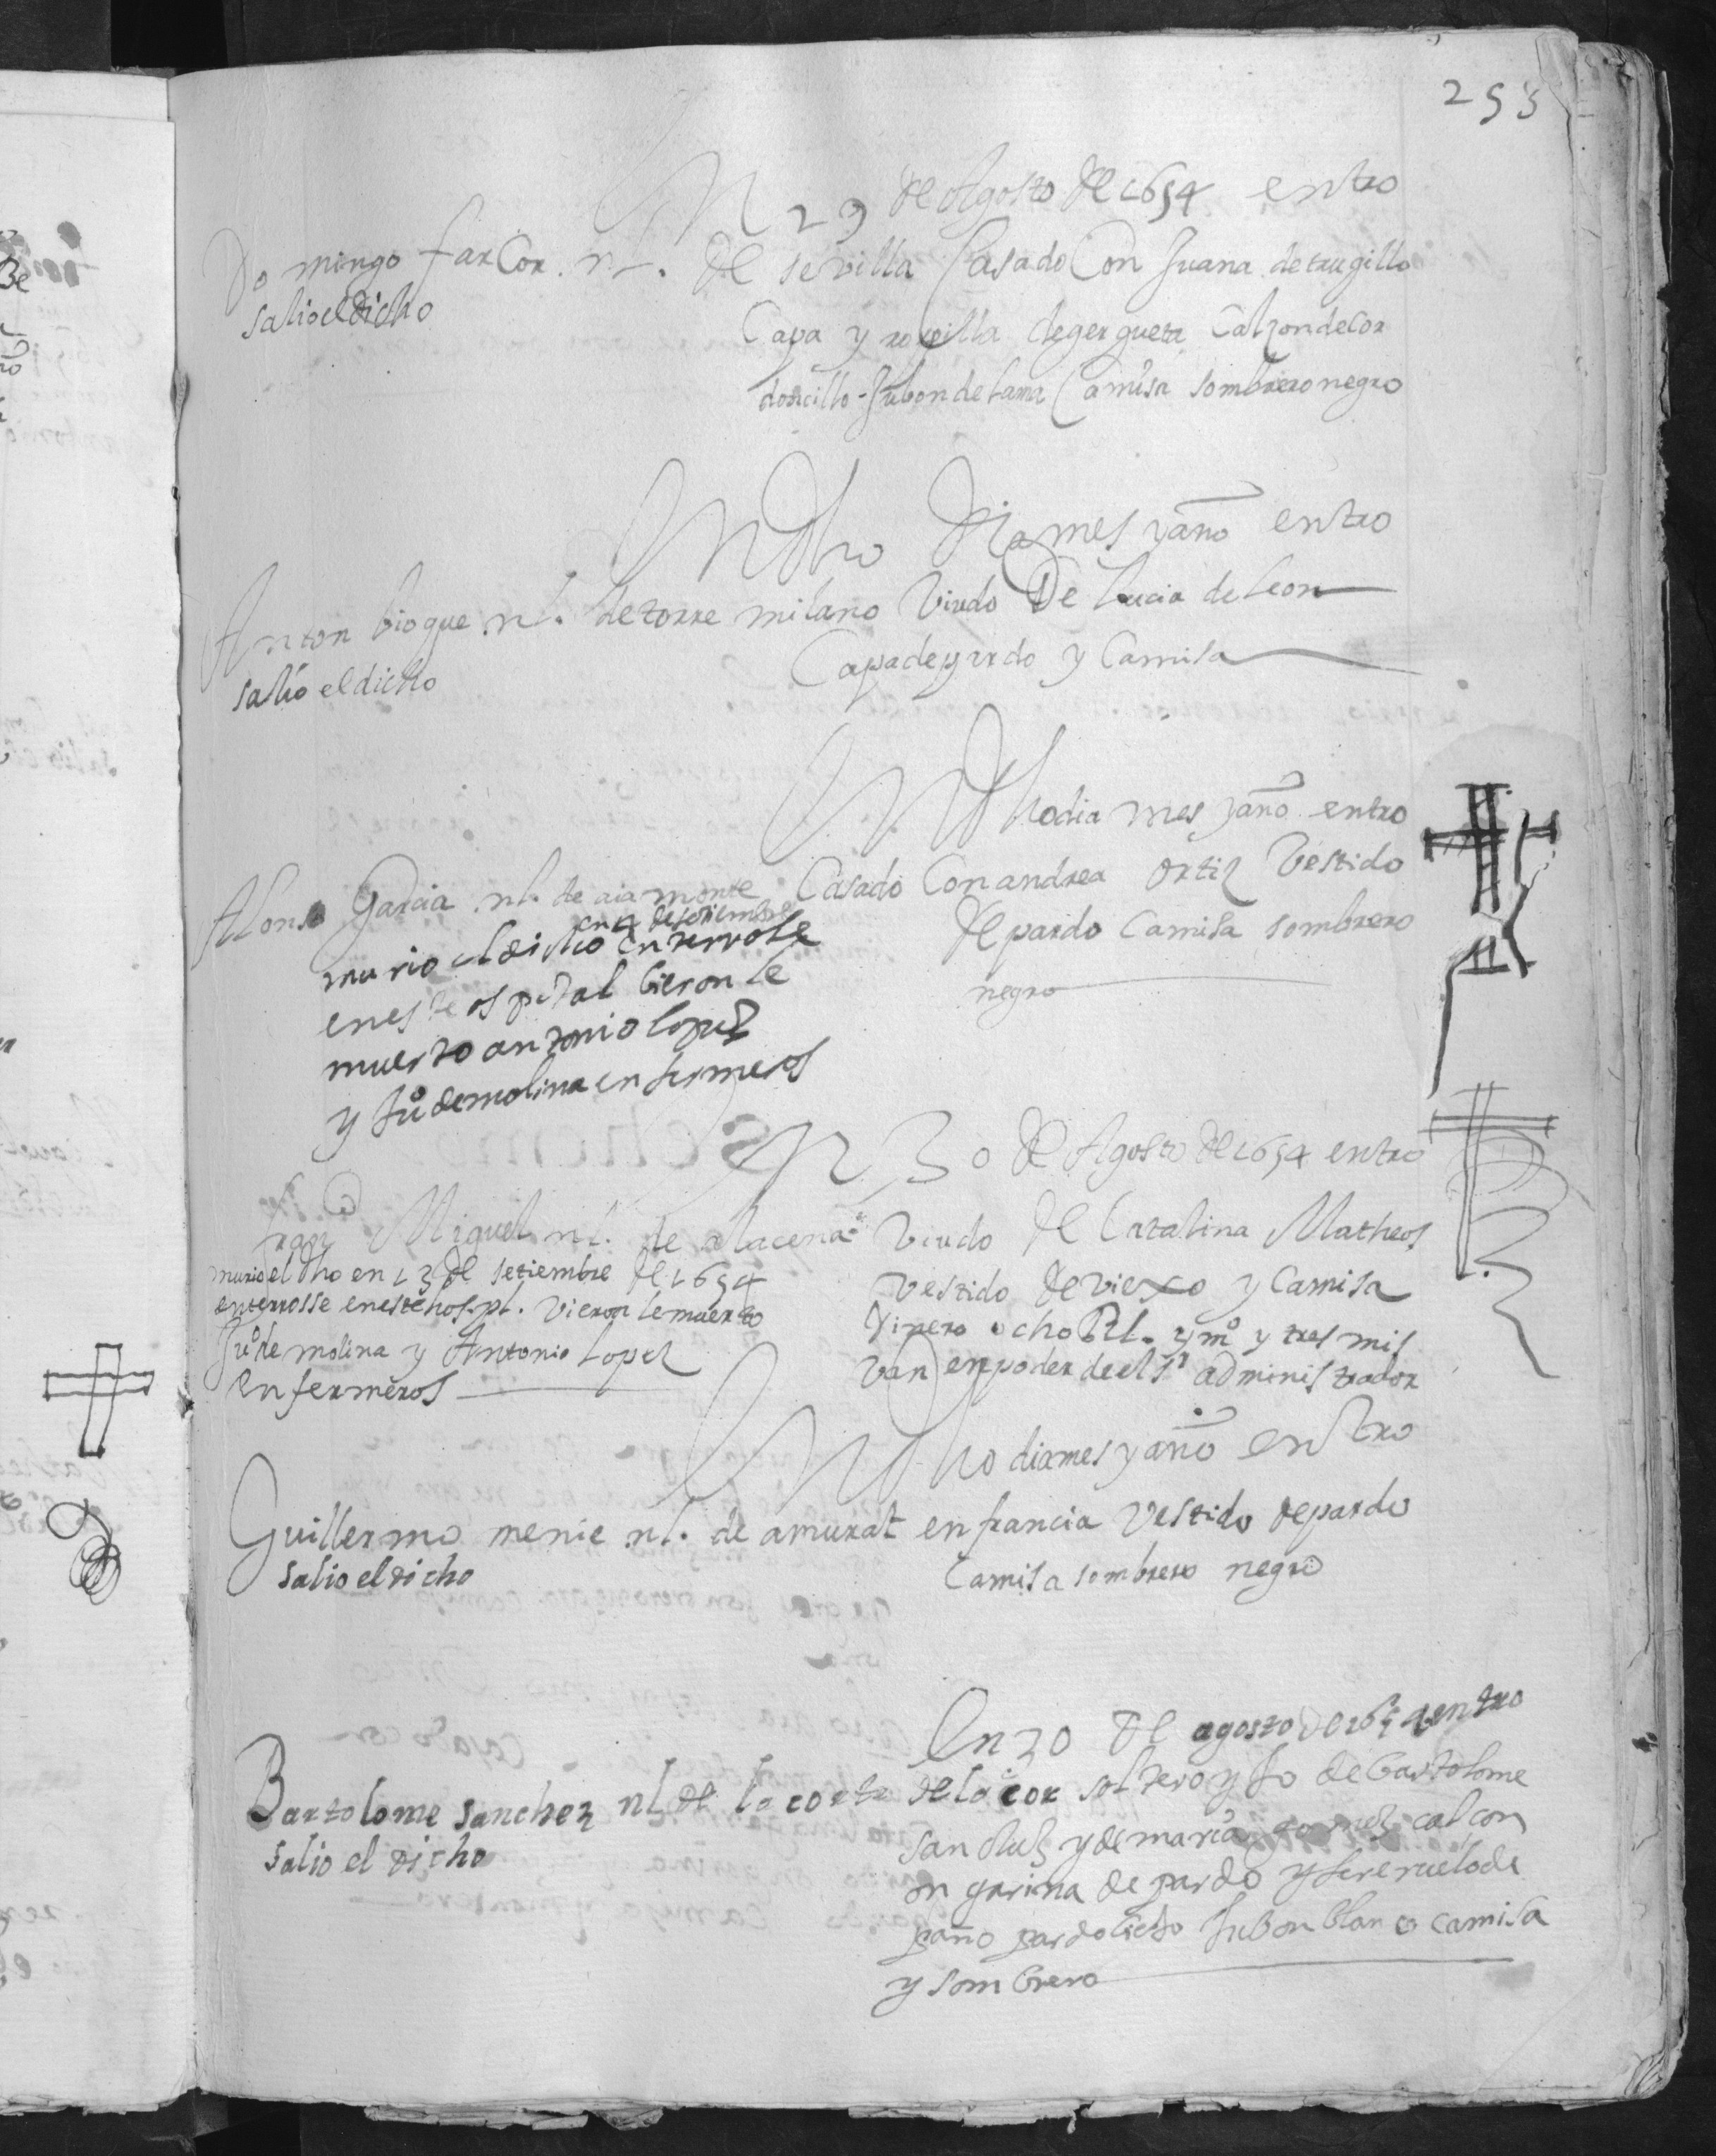 253
En 29 de Agosto de 1654 entro
Domingo farcor. nl. de sevilla Casado Con Juana de trugillo
salio el dicho
Capa y ropilla de gergueta Calzon de Cor
doncillo - Jubon de lama Camisa sombrero negro
En dho dia mes y año entro
Anton bioque nl. de torre milano Viudo De Lucia de leon
salio el dicho
Capa de pardo y Camisa
En dho dia mes y año entro
Alonso Garcia nl. de aiamonte Casado Con andrea Ortiz Vestido
en 4 de setiembre
de pardo Camisa sombrero
negro
murio el dicho enterrose
en este ospital bieronle
muerto antonio lopez
y Juº de molina enfermeros
En 30 de Agosto de 1654 entro
franco Miguel nl. de Viudo de Catalina Matheos
murio el dho en 13 de setiembre de 1654
enterrosse en este hospl. vieronle muerto
Juº de molina y Antonio Lopez
enfermeros
Vestido de viexo y Camisa
Dinero ocho Rl. y mº y tres mis
Van en poder de el sr administrador
En dho dia mes y año entro
Guillermo menie nl. de amurat en francia Vestido de pardo
salio el dicho
Camisa sombrero negro
En 30 de agosto de 1654 entro
Bartolome sanchez nl de la corte de la cor soltero y Jo de bartolome
salio el dicho
sanchez y de maria gomez calçon
de pardo y ferreruelo de
paño pardo biejo Jubon blanco camisa
y sombrero